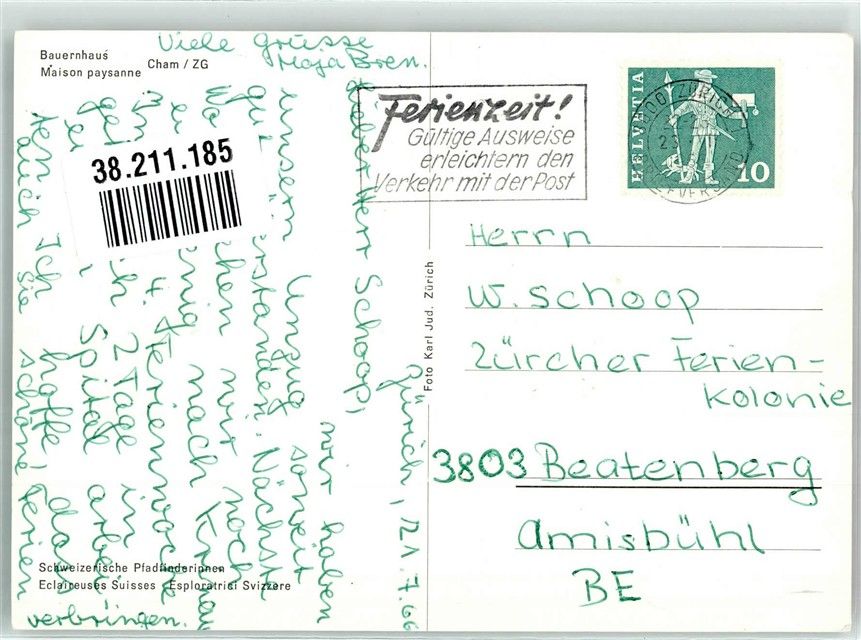 Bauernhaus
Maison paysanne
Cham / ZG
Viele Grüsse
Maja Bren.
Zürich, 21.7.66
Lieber Herr Schoop,
wir haben
unsern Umzug soweit
gut überstanden. Nächste
Wo chen wir noch
nach
4. Ferienwoche
2 Tage in
Spital
Ich hoffe, dass
auch Sie schöne Ferien
verbringen.
38.211.185
Schweizerische Pfadfinderinnen
Eclaireuses Suisses Esploratrici Svizzere
Foto Karl Jud, Zürich
Ferienzeit!
Gültige Ausweise
erleichtern den
Verkehr mit der Post
HELVETIA
10
ZÜRICH
Herrn
W. Schoop
Zürcher Ferien-
Kolonie
3803 Beatenberg
Amisbühl
BE